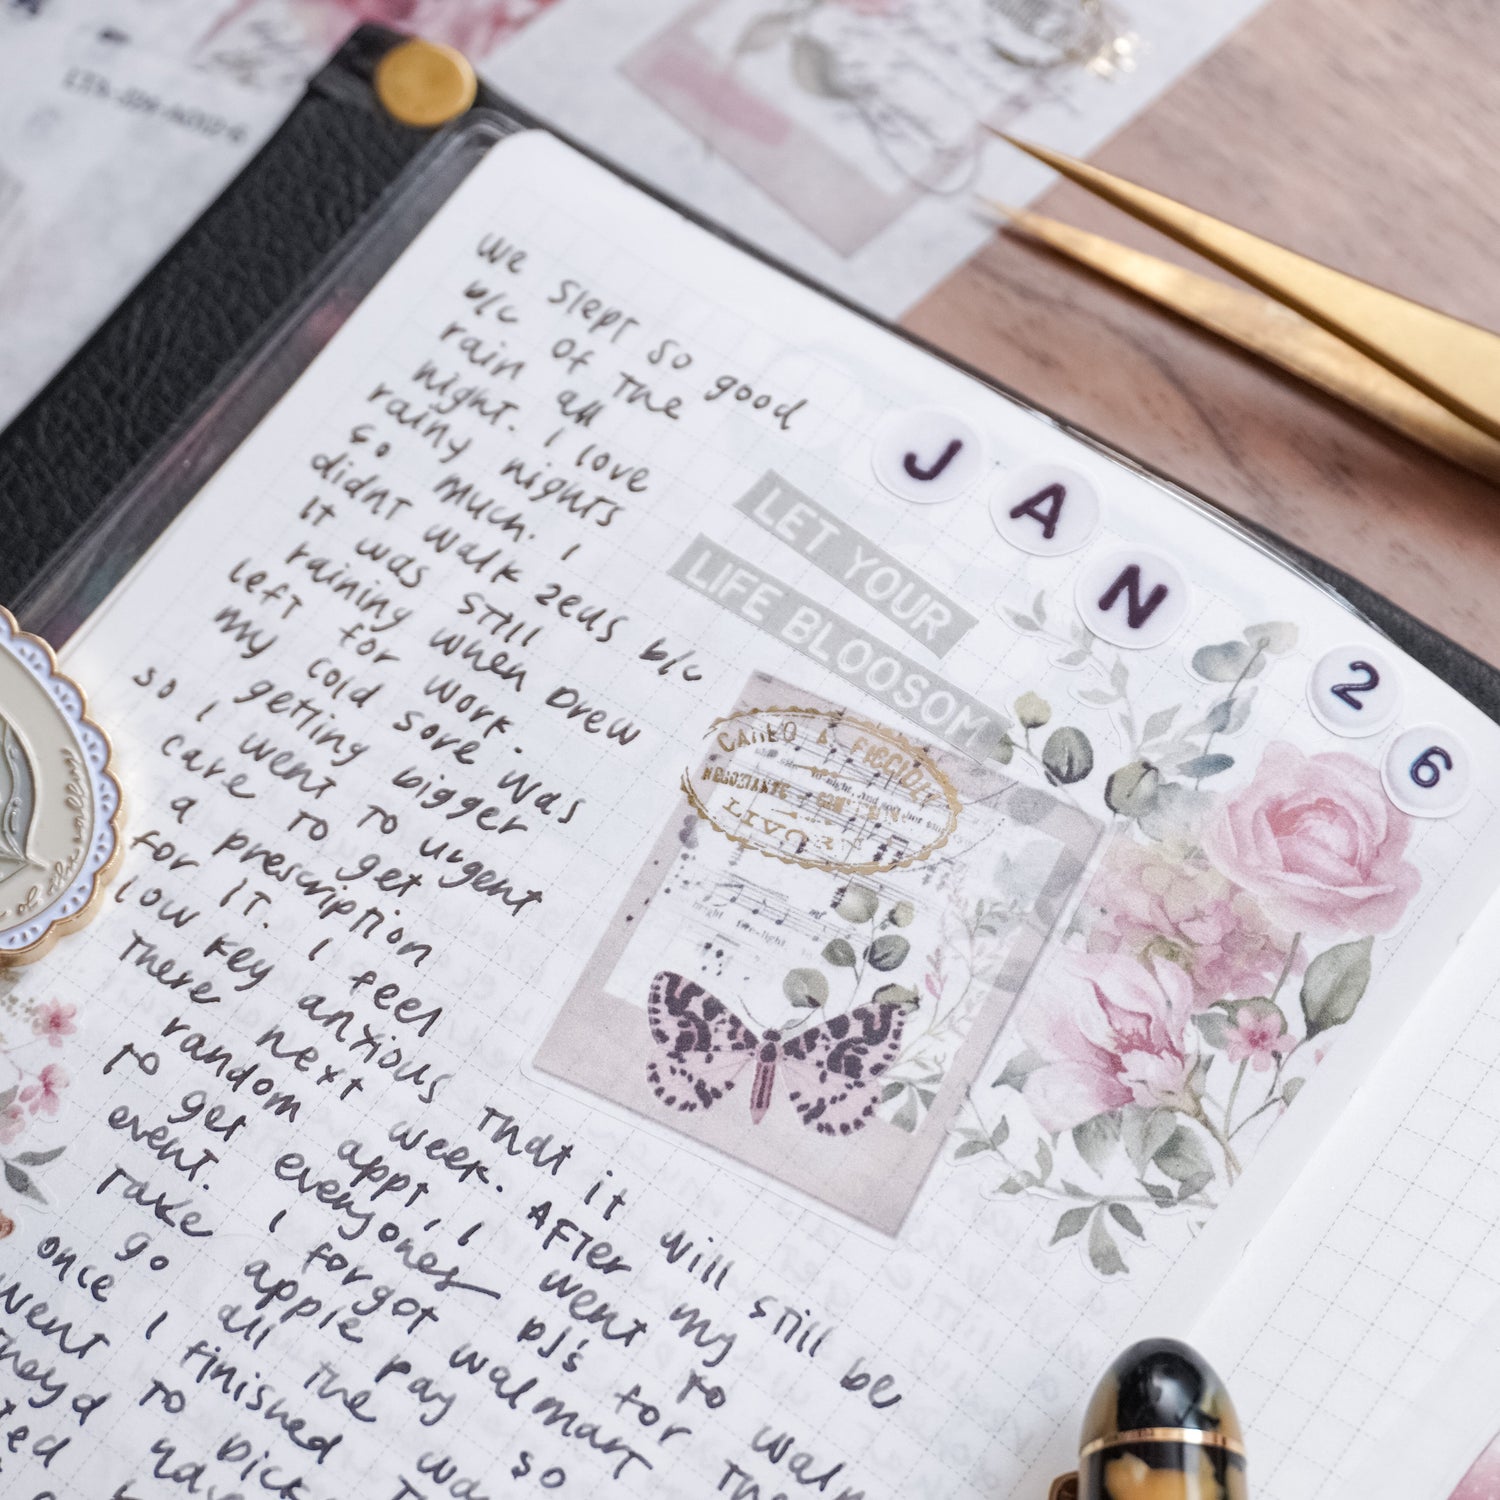 we slept so good
b/c of the
rain all
night. I love
rainy nights
so much. I
didnt walk zeus b/c
it was still
raining when Drew
left for work.
my cold sore was
getting bigger
so I went to urgent
care to get
a prescription
for it. I feel
low key anxious that it will still be
there next week. After my
random appt, I went to walm
to get everyones pjs for the
event. I forgot walmart
take apple pay so
go all the
once I finished
went to Dick
theyd
JAN 26
LET YOUR
LIFE BLOOSOM
night
of the